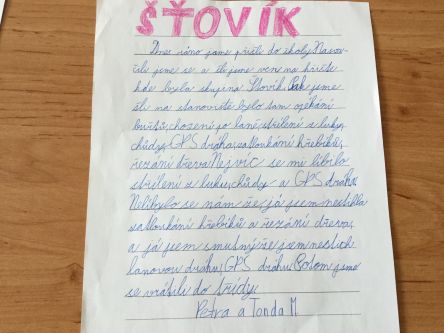 ŠŤOVÍK
Dnes ráno jsme přišli do školy. Nasva-
čili jsme se a šli jsme ven na hřiště
kde byla skupina Šťovík. Pak jsme
šli na stanoviště bylo tam opékání
buřtů, chození po laně, střílení z luku,
chůdy, GPS dráha, zatloukání hřebíků,
řezání dřeva. Nejvíc se mi líbilo
střílení z luku, chůdy a GPS dráha.
Nelíbilo se nám že já jsem nestihla
zatloukání hřebíků a řezání dřeva,
a já jsem smutný že jsem nestich
lanovou dráhu, GPS dráhu. Potom jsme
se vrátili do třídy.
Petra a Tonda M.